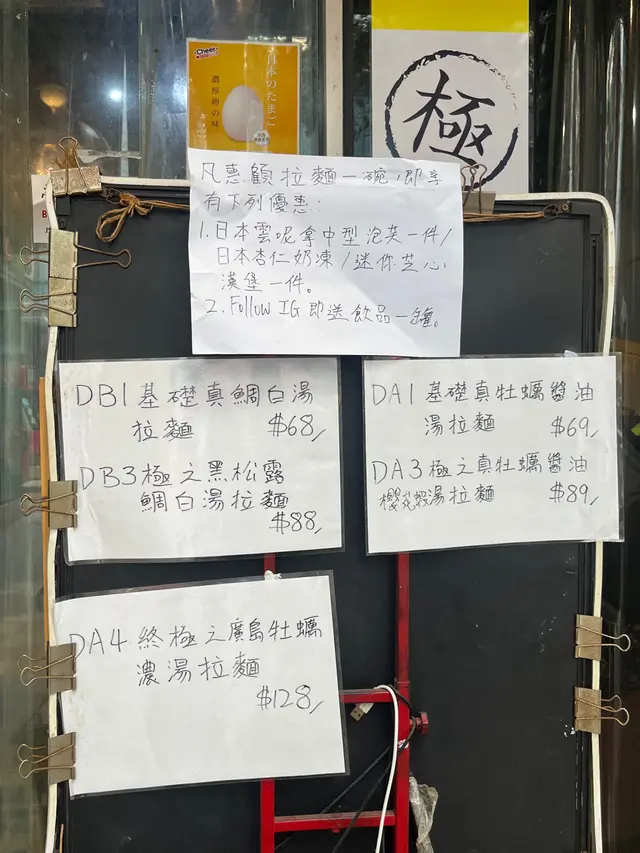 Cheer
日本のたまご
濃厚卵の味
極
凡惠顧拉麵一碗,即享
有下列優惠:
1.日本雲呢拿中型泡芙一件/
日本杏仁奶凍/迷你芝心
漢堡一件。
2.Follow IG即送飲品一罐。
DB1基礎真鯛白湯
拉麵 $68/
DB3極之黑松露
鯛白湯拉麵
$88/
DA1基礎真牡蠣醬油
湯拉麵 $69/
DA3極之真牡蠣醬油
櫻花蝦湯拉麵 $89/
DA4終極之廣島牡蠣
濃湯拉麵
$128/